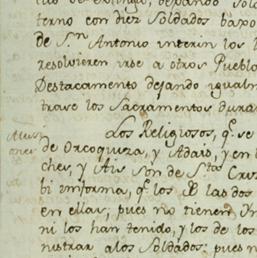 terno con diez Soldados baxo
de Sn. Antonio interin los
resolvieren irse a otros Pueblo
Destacamento dejando igualm
trase los Sacramentos dura
Los Religiosos, qe. se
de Orcoquiza, y Adais, y en
ches, y Ais son de Sta. Cruz
bi informa, qe. los las dos
en ellas; pues no tienen Yn
ni los han tenido, y los de los
nistrar a los Soldados: pues n